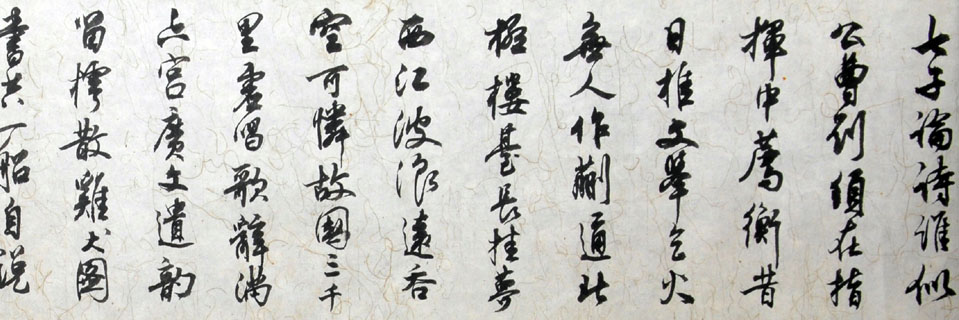 七子論詩誰似
公曹刘須在指
揮中薦衡昔
日推文舉乞火
無人作蒯通北
極樓臺長挂夢
西江波浪遠吞
空可憐故國三千
里虛唱歌辭滿
六宮廣文遺韵
留樗散雞犬圖
書共一船自說